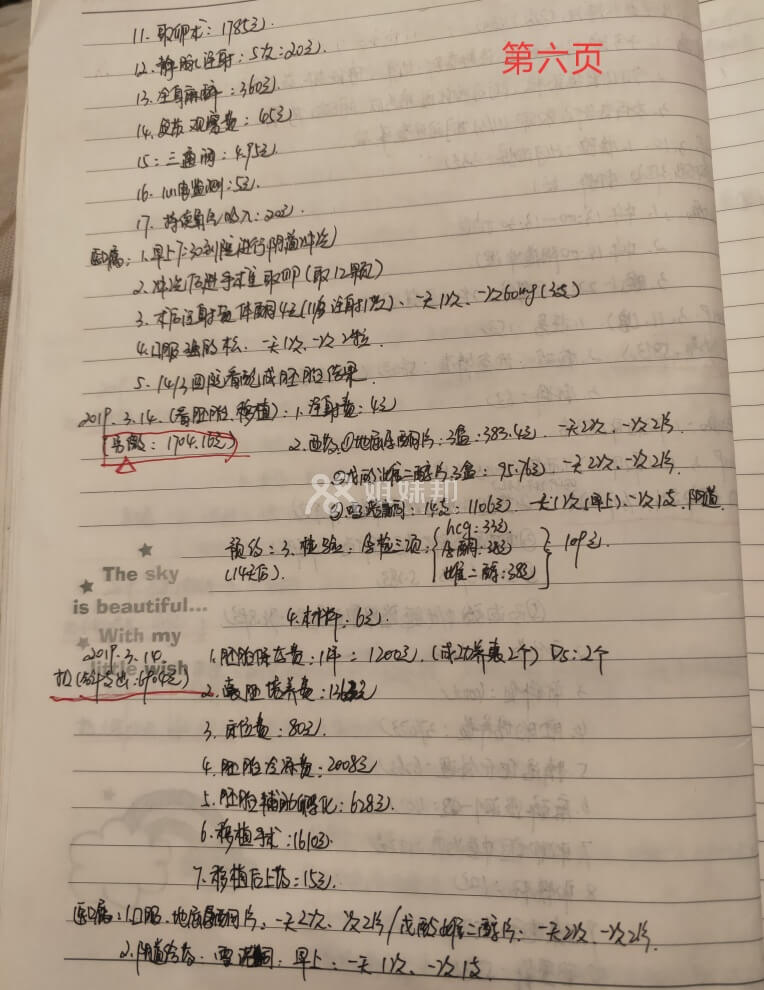 第六页
11. 取卵术：1785元.
12. 静脉注射：5次：20元.
13. 全身麻醉：360元.
14. 观察费：65元
15：三通阀：4.95元.
16. 监测：5元.
17. 持续吸入：20元.
医嘱：1.早上7:30到院进行阴道冲洗
2. 冲洗后进手术室取卵(取12颗)
3. 术后注射黄体酮4天、一天1次、一次60mg(3支)
4.口服、一天1次、一次2粒
5. 14/3回院看配成胚胎结果.
2019.3.14.(看胚胎、移植)：1.注射费：4元
1704.16元
2.西药：①地屈孕酮片：3盒：383.4元. 一天2次、一次2片
②戊酸雌二醇片3盒：95.76元 一天2次、一次2片.
③雪诺酮：14支：1106元. 一天1次(早上)、一次1支.阴道
预约：3.检验：孕检三项：
hcg：33元.
孕酮：38元
雌二醇：38元
109元.
(14天后).
4.材料：6元.
The sky
is beautiful...
With my
little wish
姐妹邦
2019.3.14
1.胚胎冻存费：1年：1200元.(成功养囊2个) D5：2个
2.囊胚培养费：
3.床位费：80元.
4.胚胎冷冻费：2008元
5.胚胎辅助孵化：628元.
6.移植手术：1610元.
7.移植后上药：15元.
医嘱：1.口服.地屈孕酮片、一天2次、一次2片/戊酸雌二醇片：一天2次、一次2片.
2.阴道给药.雪诺酮：早上：一天1次、一次1支